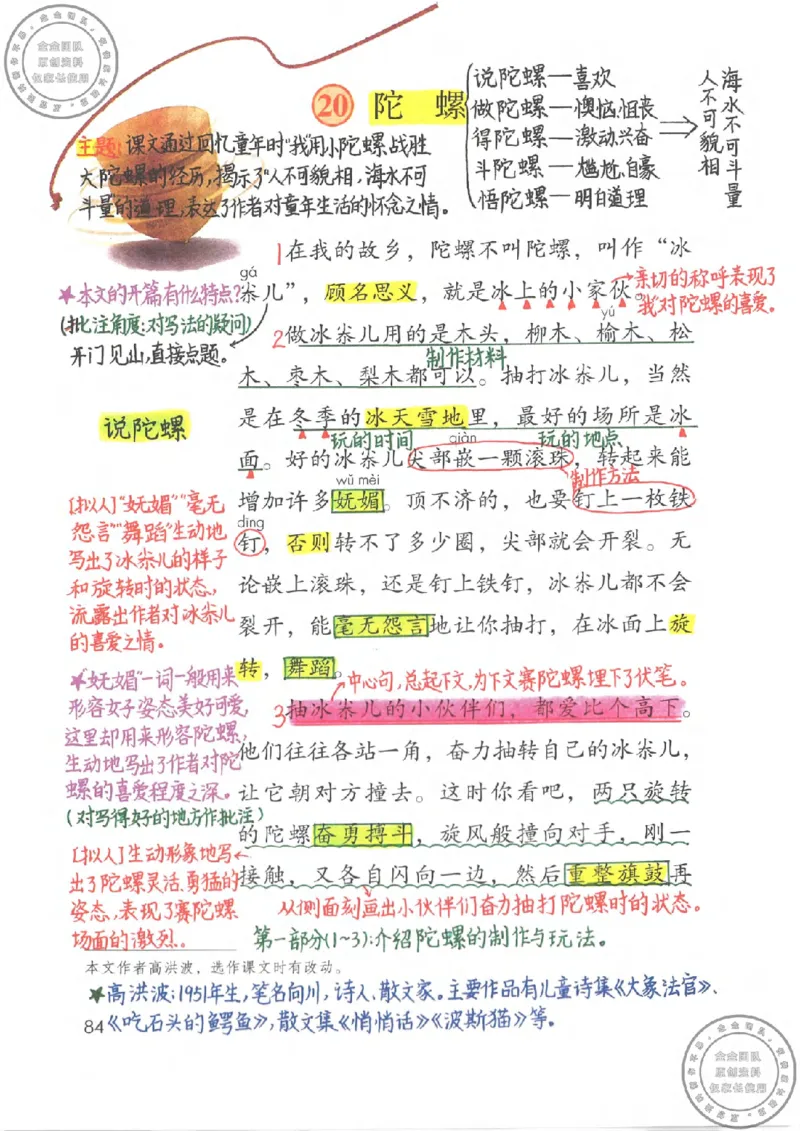 20 陀 螺
说陀螺—喜欢
做陀螺—懊恼、沮丧
得陀螺—激动、兴奋
斗陀螺—尴尬、自豪
悟陀螺—明白道理
人不可貌相
海水不可斗量
主题:课文通过回忆童年时“我”用小陀螺战胜
大陀螺的经历,揭示了“人不可貌相,海水不可
斗量的道理,表达了作者对童年生活的怀念之情。
1在我的故乡,陀螺不叫陀螺,叫作“冰
gá
尜儿”,顾名思义,就是冰上的小家伙。
亲切的称呼表现了
我对陀螺的喜爱。
★本文的开篇有什么特点?
(批注角度:对写法的疑问)
开门见山,直接点题。
yú
2做冰尜儿用的是木头,柳木、榆木、松
制作材料
木、枣木、梨木都可以。抽打冰尜儿,当然
说陀螺
是在冬季的冰天雪地里,最好的场所是冰
玩的时间
qiàn
玩的地点
面。好的冰尜儿尖部嵌一颗滚珠,转起来能
制作方法
wǔ mèi
增加许多妩媚。顶不济的,也要钉上一枚铁
dīng
钉,否则转不了多少圈,尖部就会开裂。无
论嵌上滚珠,还是钉上铁钉,冰尜儿都不会
裂开,能毫无怨言地让你抽打,在冰面上旋
转,舞蹈。
[拟人]“妩媚”“毫无
怨言”“舞蹈”生动地
写出了冰尜儿的样子
和旋转时的状态,
流露出作者对冰尜儿
的喜爱之情。
中心句,总起下文,为下文赛陀螺埋下了伏笔。
3抽冰尜儿的小伙伴们,都爱比个高下。
他们往往各站一角,奋力抽转自己的冰尜儿,
让它朝对方撞去。这时你看吧,两只旋转
的陀螺奋勇搏斗,旋风般撞向对手,刚一
接触,又各自闪向一边,然后重整旗鼓再
★“妩媚”一词一般用来
形容女子姿态美好可爱,
这里却用来形容陀螺,
生动地写出了作者对陀
螺的喜爱程度之深。
(对写得好的地方作批注)
[拟人]生动形象地写
出了陀螺灵活、勇猛的
姿态,表现了赛陀螺
场面的激烈。
从侧面刻画出小伙伴们奋力抽打陀螺时的状态。
第一部分(1~3):介绍陀螺的制作与玩法。
本文作者高洪波,选作课文时有改动。
★高洪波:1951年生,笔名向川,诗人、散文家。主要作品有儿童诗集《大象法官》、
84《吃石头的鳄鱼》,散文集《悄悄话》《波斯猫》等。
原创资料
原创资料